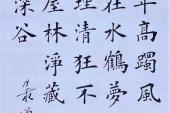 高躅風
在水鶴夢
理清狂不
屋林淨藏
深谷